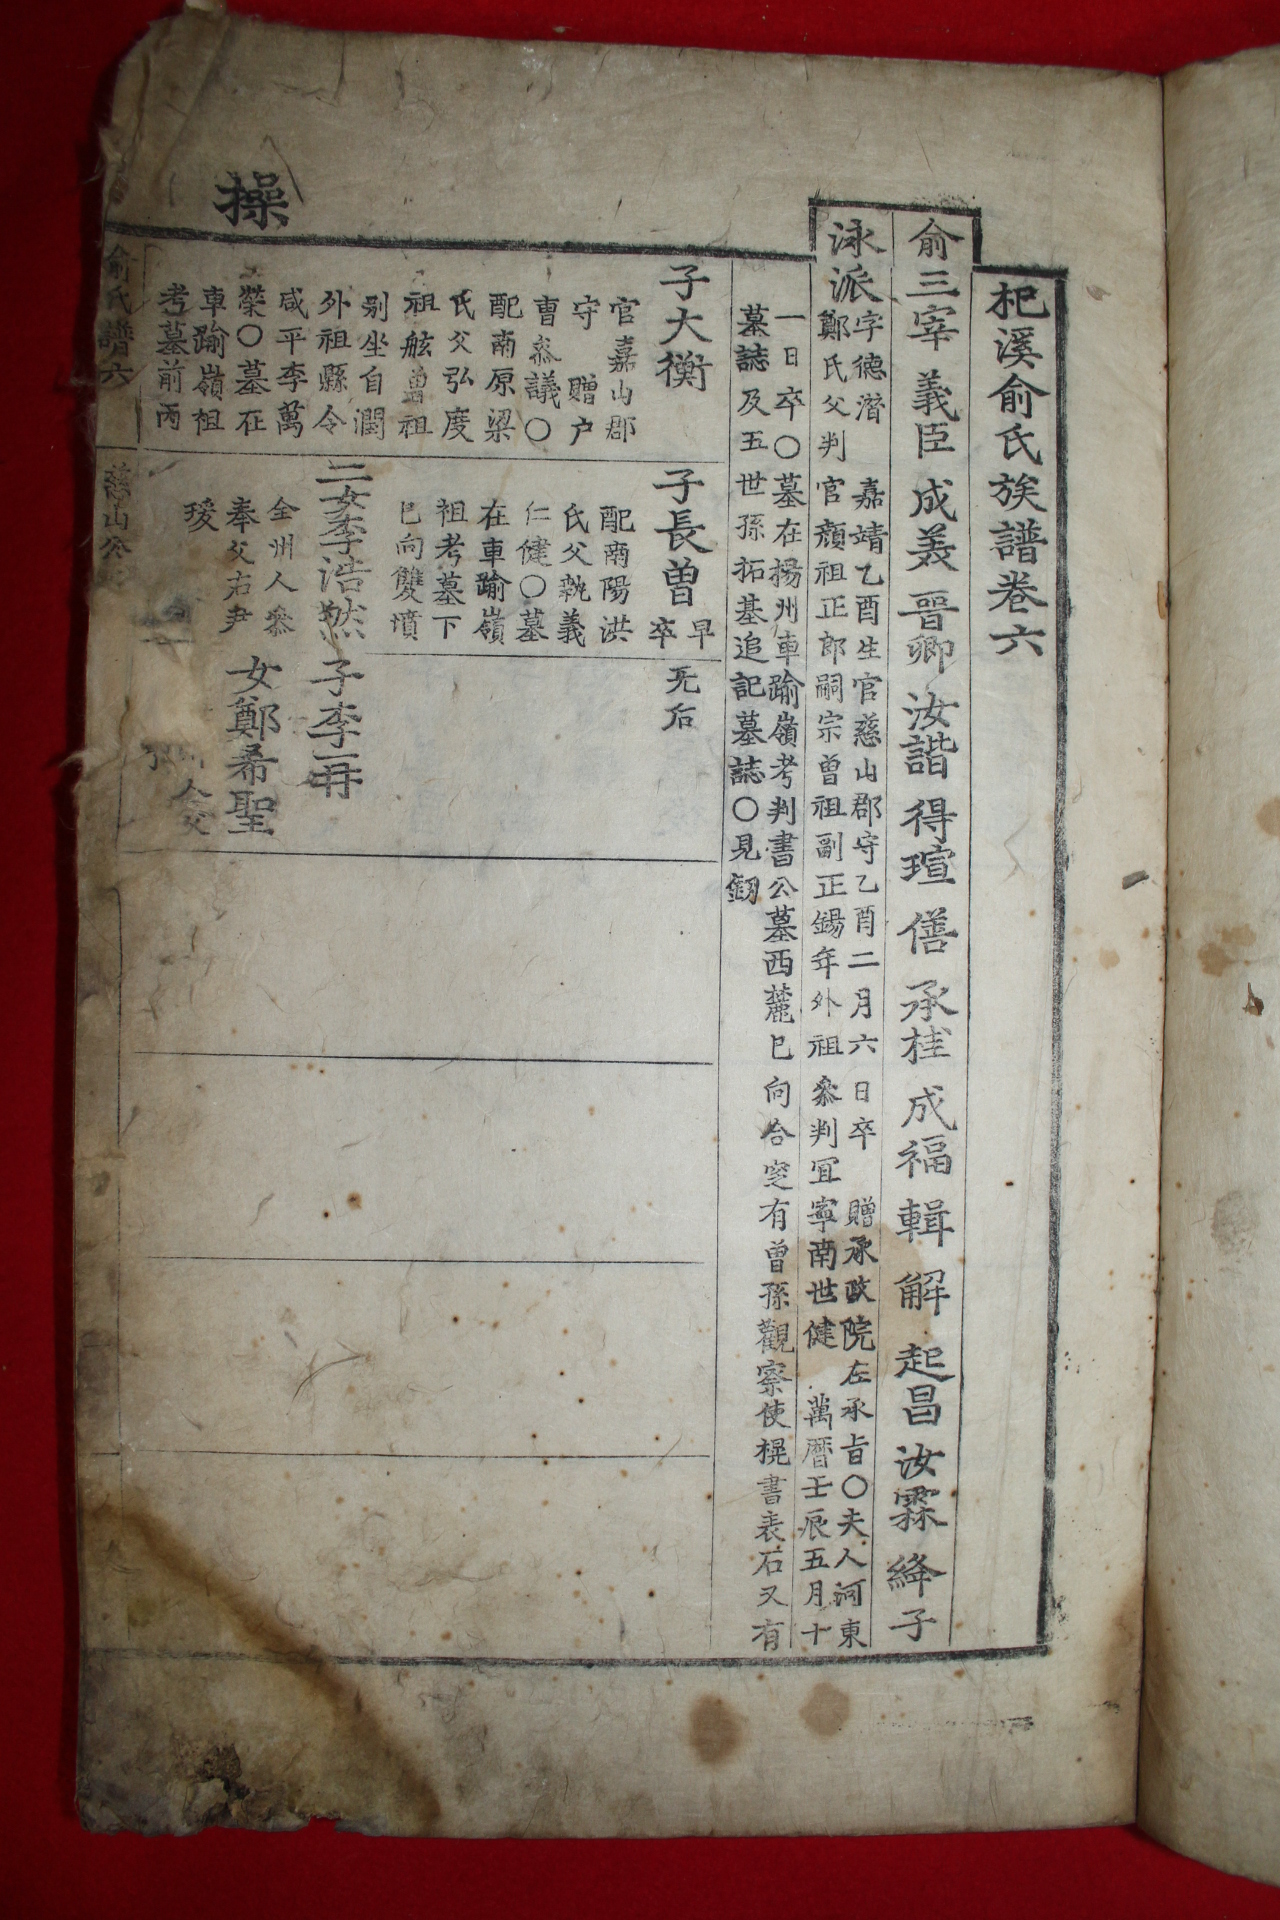 杞溪俞氏族譜卷六
俞三宰 義臣 成義 晉卿 汝諧 得瑄 僐 承桂 成福 輯 解 起昌 汝霖 絳 子
泳派
字德潛 嘉靖乙酉生官慈山郡守乙酉二月六日卒 贈承政院左承旨〇夫人河東
鄭氏父判官顏祖正郎嗣宗曾祖副正錫年外祖叅判冝寧南世健 萬曆壬辰五月十
一日卒〇墓在揚州車踰嶺考判書公墓西麓巳向合窆有曾孫觀察使榥書表石又有
墓誌及五世孫拓基追記墓誌〇見劔
操
子大衡
官嘉山郡
守 贈户
曹叅議〇
配南原梁
氏父弘度
祖舷曾祖
别坐自潤
外祖縣令
咸平李萬
榮〇墓在
車踰嶺祖
考墓前丙
子長曾
早卒
配南陽洪
氏父執義
仁健〇墓
在車踰嶺
祖考墓下
巳向雙墳
二女李浩然
全州人叅
奉父右尹
瑗
无后
子李
女鄭希聖
俞氏譜六
慈山公